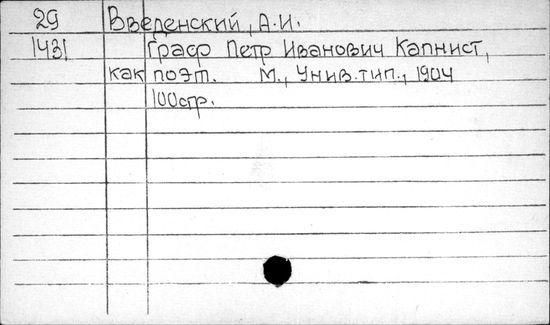 29 Введенский, А.И.
1431 Граф Петр Иванович Капнист,
как поэт. М., Унив. тип., 1904
100стр.